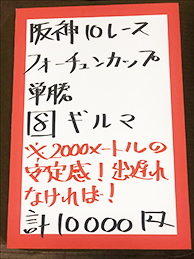 阪神10レース
フォーチュンカップ
単勝
8 ギルマ
※2000メートルの
安定感!出遅れ
なければ!
計10000円